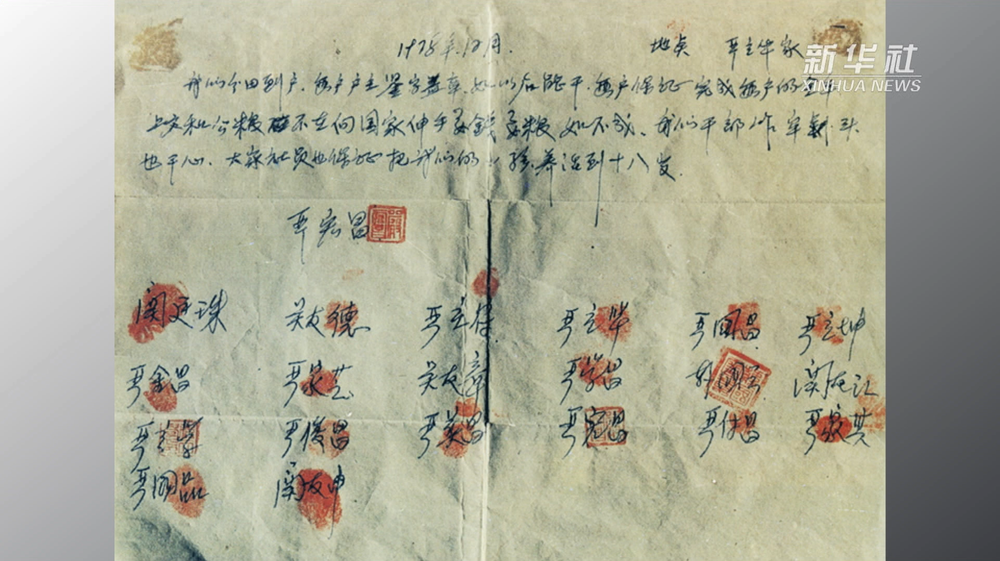 新华社
XINHUA NEWS
1978年12月. 地点 严立华家
我们分田到户,每户户主签字盖章,如以后能干,每户保证完成每户的全年
上交和公粮不在向国家伸手要钱要粮,如不成,我们干部作牢刹头
也干心,大家社员也保证把我们的小孩养活到十八岁.
严宏昌
关廷珠 关友德 严立符 严立华 严国昌 严立坤
严金昌 严家芝 关友章 严学昌 韩国云 关友江
严立学 严俊昌 严美昌 严宏昌 严付昌 严家其
严国品 关友申